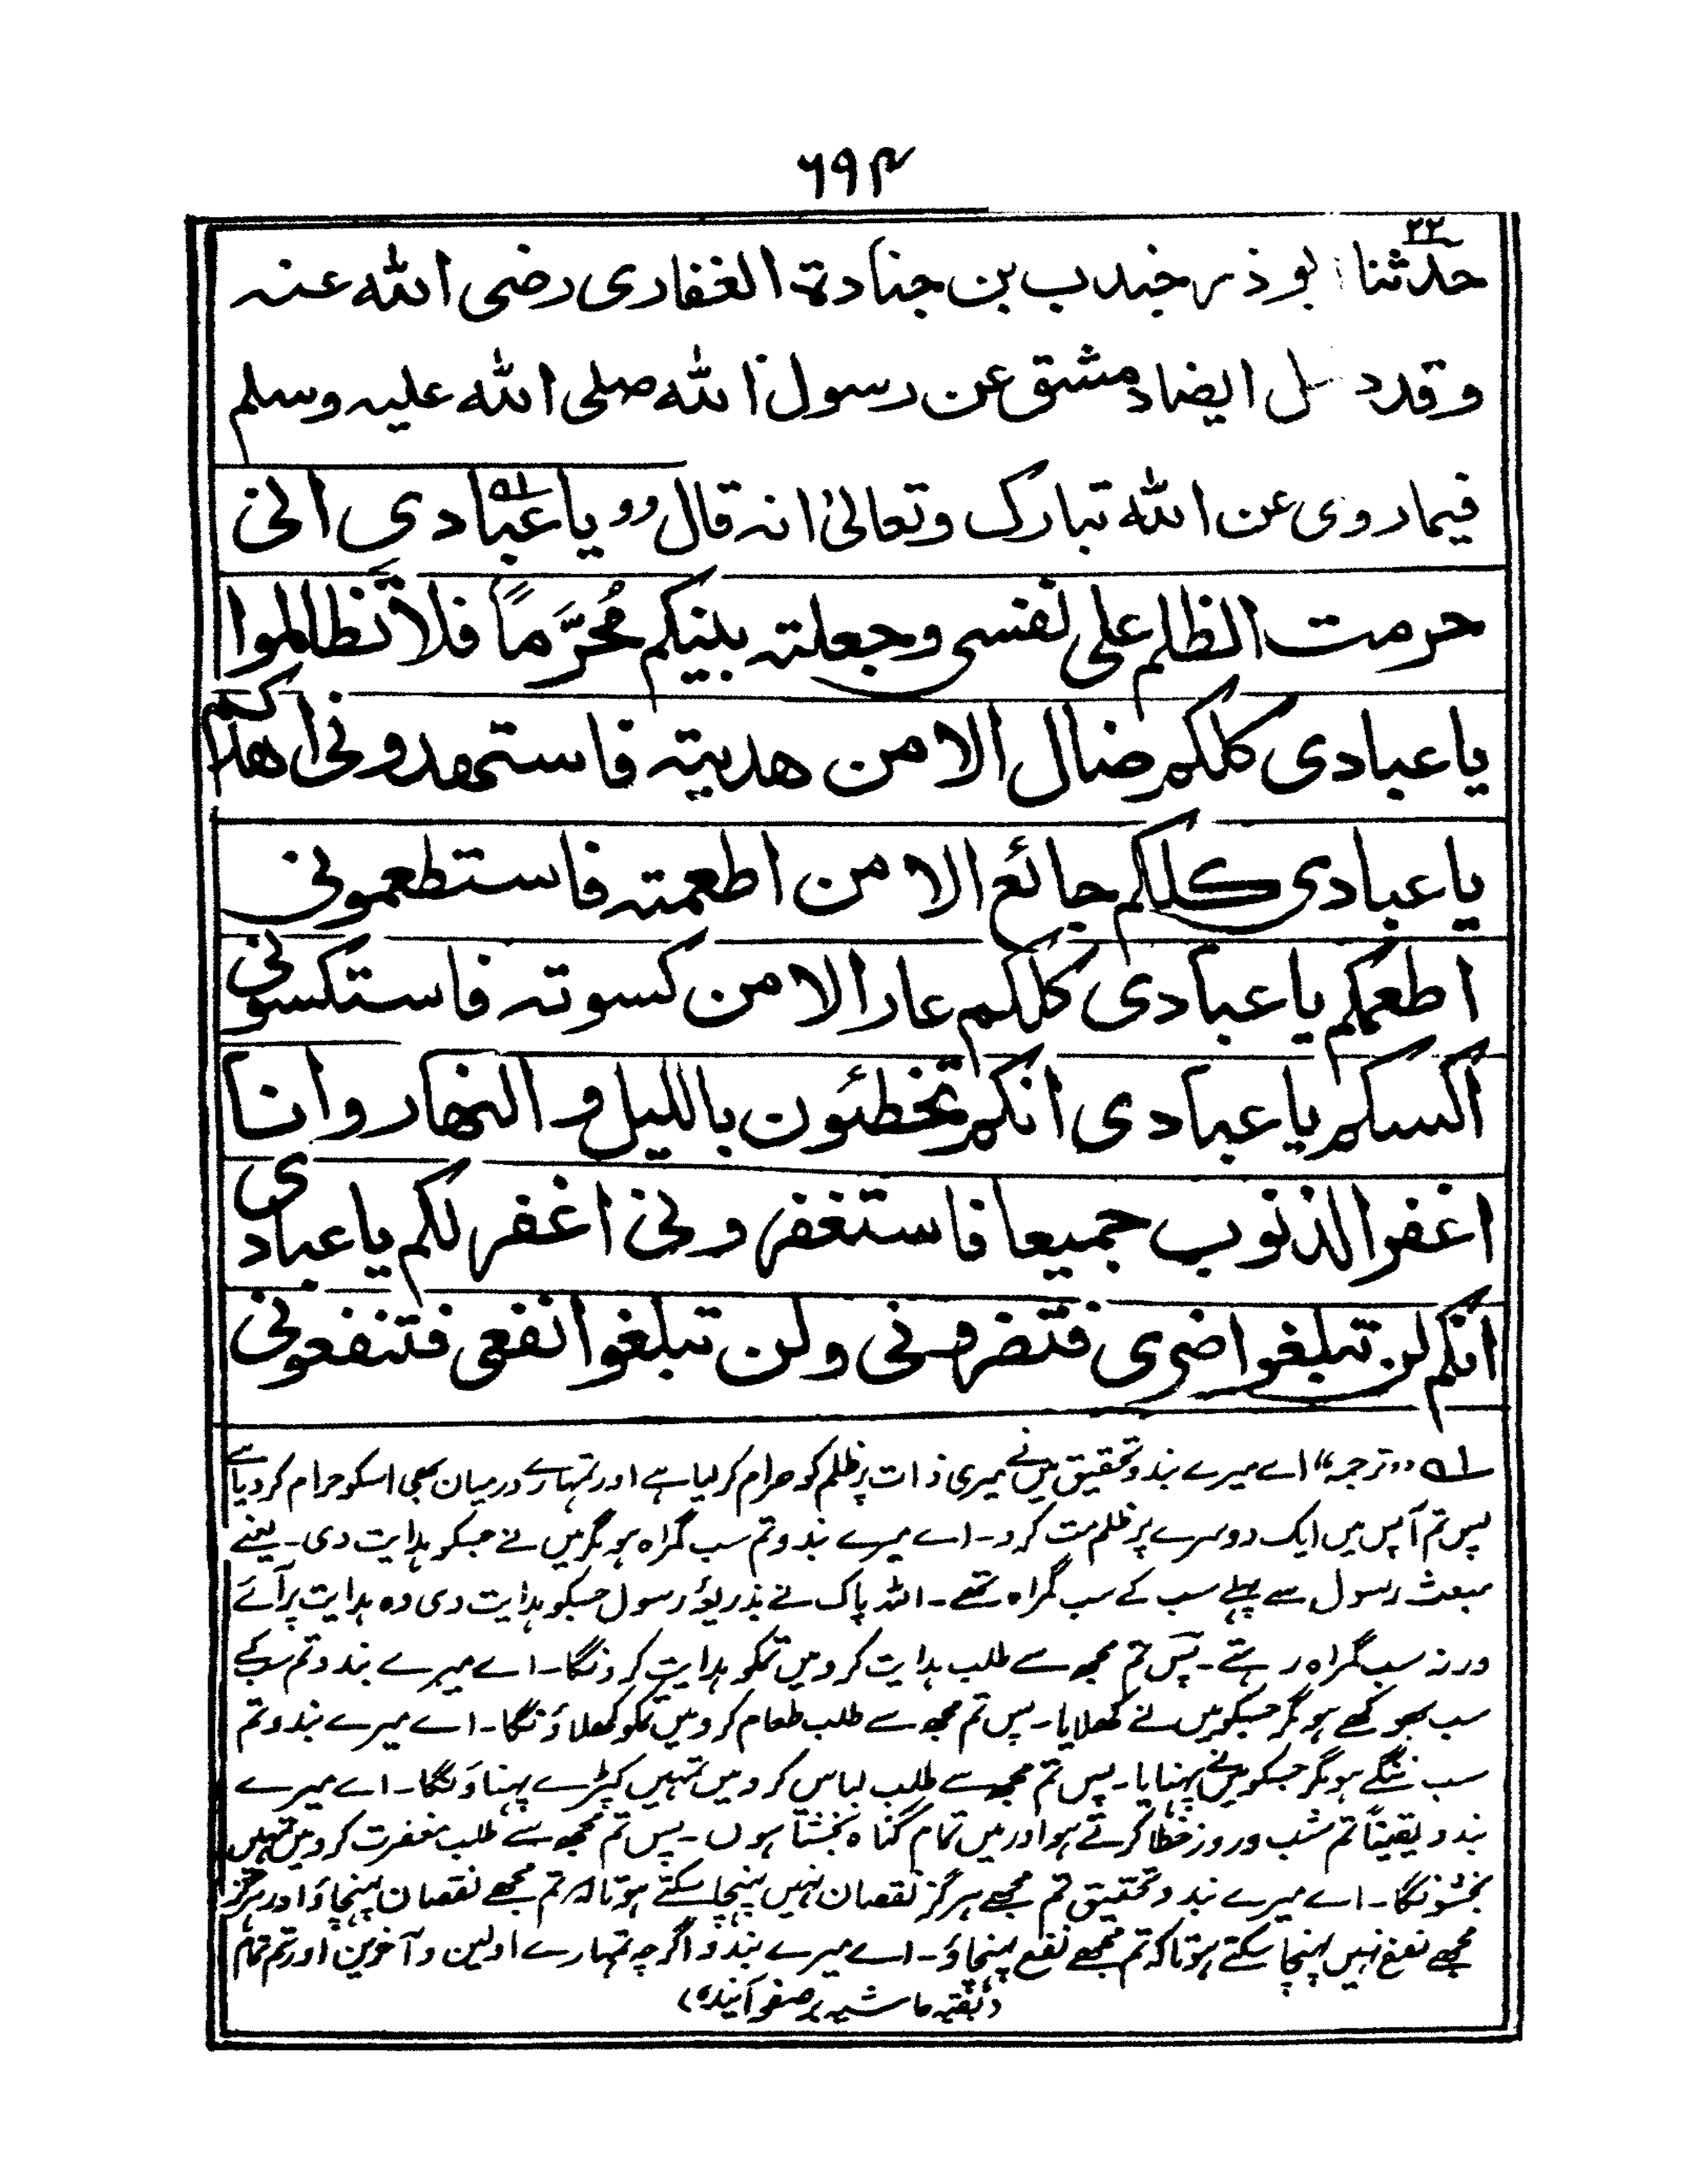 ۶۹۴
۲۲
حدثنا ابو ذر جندب بن جنادة الغفاری رضی الله عنه
وقد دخل ایضاد مشق عن رسول الله صلی الله علیه وسلم
فیما روی عن الله تبارک وتعالیٰ انه قال "یا عبادی انی
حرمت الظلم علی نفسی وجعلته بینکم مُحَرَّماً فلا تَظالموا
یا عبادی کلکم ضال الا من هدیته فاستهدونی اهدکم
یا عبادی کلکم جائع الا من اطعمته فاستطعمونی
اطعمکم یا عبادی کلکم عار الا من کسوته فاستکسونی
اکسکم یا عبادی انکم تخطئون باللیل و النهار وانا
اغفر الذنوب جمیعا فاستغفرونی اغفر لکم یا عبادی
انکم لن تبلغوا ضری فتضرونی ولن تبلغوا نفعی فتنفعونی
لہ "ترجمہ" اے میرے بندو تحقیق میں نے میری ذات پر ظلم کو حرام کر لیا ہے اور تمہارے درمیان بھی اسکو حرام کر دیا ہے
پس تم آپس میں ایک دوسرے پر ظلم مت کرو۔ اے میرے بندو تم سب گمراہ ہو مگر میں نے جسکو ہدایت دی۔ یعنے
مبعث رسول سے پہلے سب کے سب گمراہ تھے۔ اللہ پاک نے بذریعۂ رسول جسکو ہدایت دی وہ ہدایت پر آئے
ورنہ سب گمراہ رہتے۔ پس تم مجھ سے طلب ہدایت کرو میں تمکو ہدایت کرونگا۔ اے میرے بندو تم سب کے
سب بھوکھے ہو مگر جسکو میں نے کھلایا۔ پس تم مجھ سے طلب طعام کرو میں تمکو کھلاؤنگا۔ اے میرے بندو تم
سب ننگے ہو مگر جسکو میں نے پہنایا۔ پس تم مجھ سے طلب لباس کرو میں تمہیں کپڑے پہناؤنگا۔ اے میرے
بندو یقیناً تم شب و روز خطا کرتے ہو اور میں تمام گناہ بخشتا ہوں۔ پس تم مجھ سے طلب مغفرت کرو میں تمہیں
بخشونگا۔ اے میرے بندو تحقیق تم مجھے ہرگز نقصان نہیں پہنچا سکتے ہو تاکہ تم مجھے نقصان پہنچاؤ اور ہرگز
مجھے نفع نہیں پہنچا سکتے ہو تاکہ تم مجھے نفع پہنچاؤ۔ اے میرے بندو اگرچہ تمہارے اولین و آخرین اور تم تمام
(بقیہ حاشیہ بر صفحہ آئندہ)